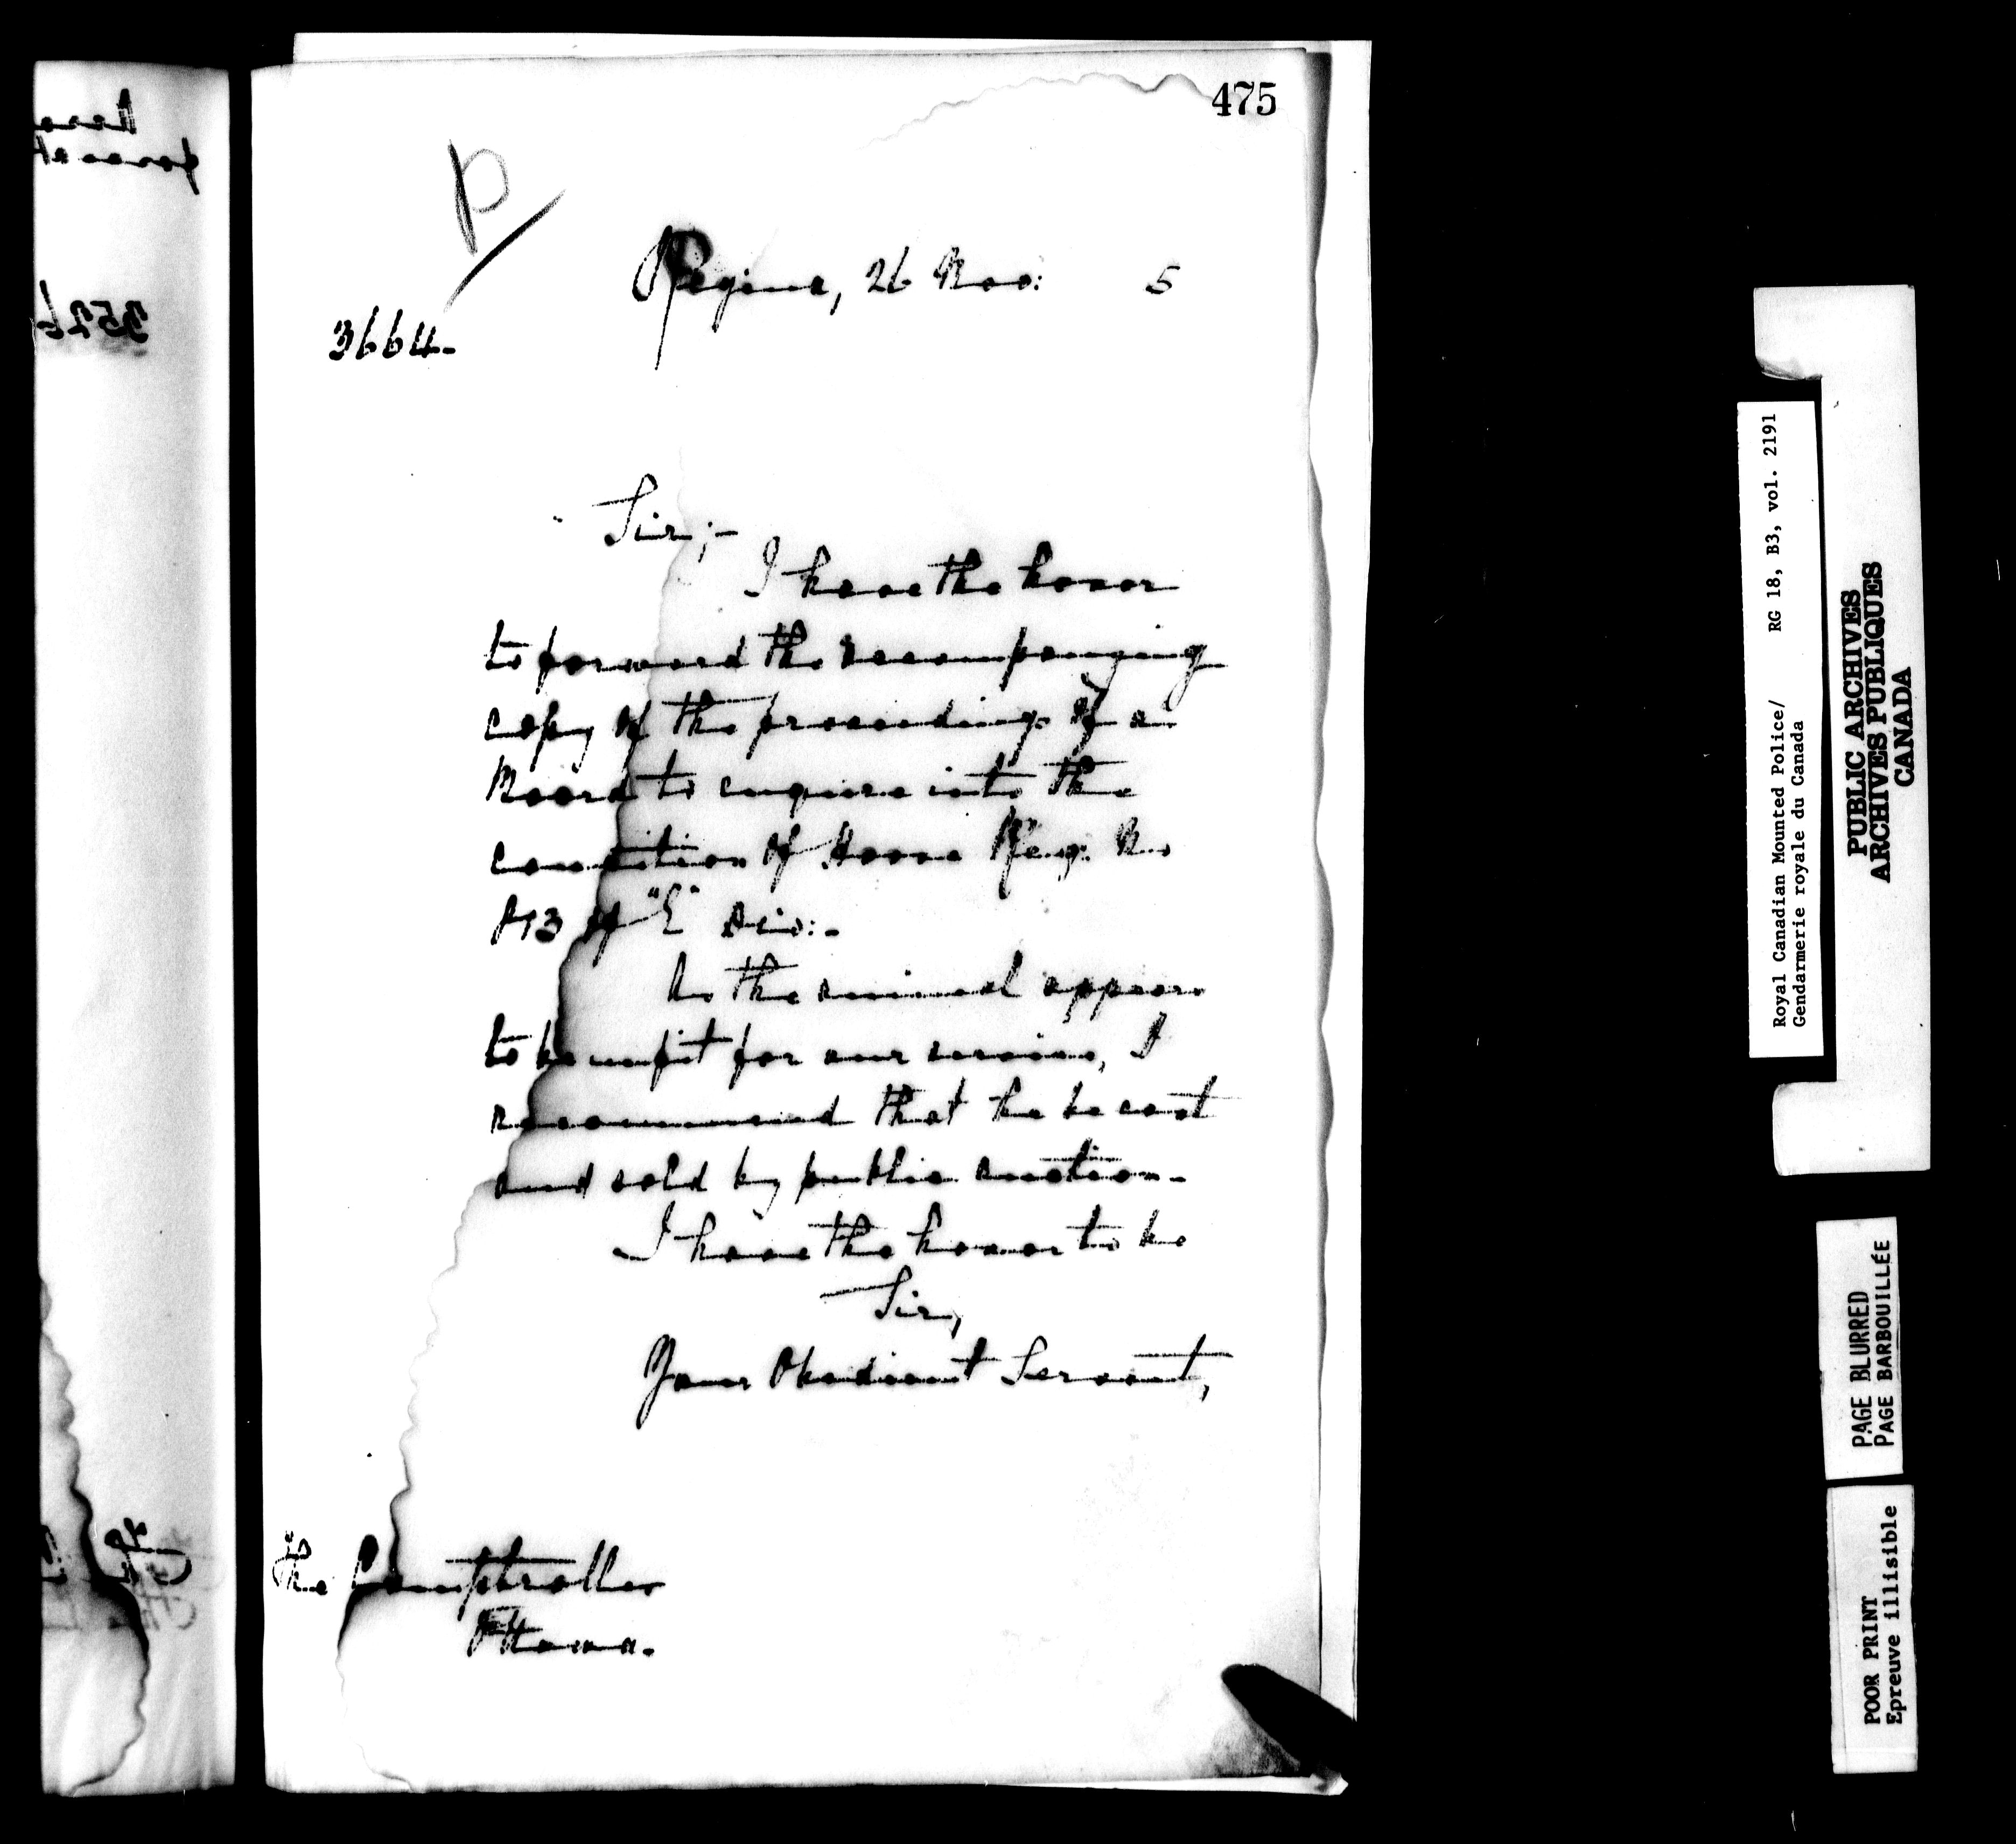 475
P
Regina, 26 Nov: 5
3664.
Sir;-
I have the honor
to forward the accompanying
copy of the proceedings of a
Board to enquire into the
condition of Horse Reg. No
of "E" Div:-
As the animal appears
to be unfit for our service, I
recommend that he be cast
and sold by public auction.
I have the honor to be
Sir,
Your Obedient Servant,
The Comptroller
Ottawa.
3526
Royal Canadian Mounted Police/ RG 18, B3, vol. 2191
Gendarmerie royale du Canada
PUBLIC ARCHIVES
ARCHIVES PUBLIQUES
CANADA
PAGE BLURRED
PAGE BARBOUILLÉE
POOR PRINT
Epreuve illisible